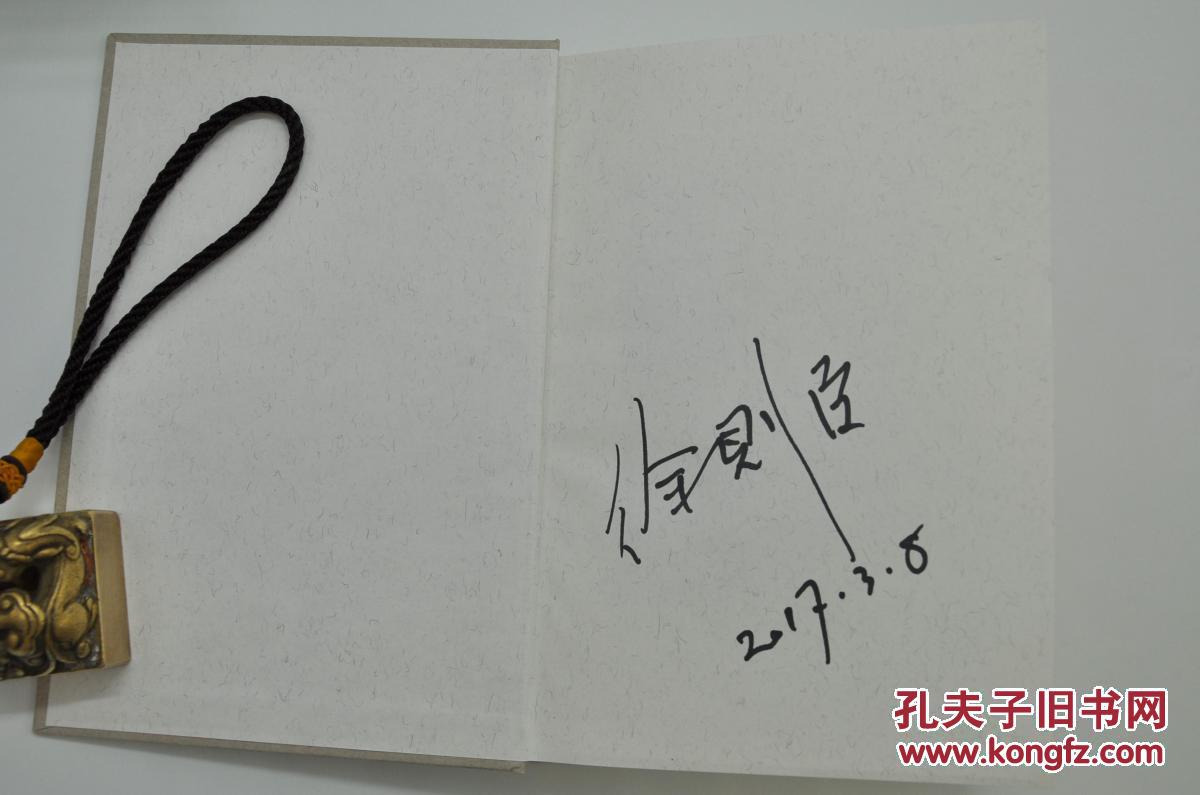 徐则臣
2017.3.8
孔夫子旧书网
www.kongfz.com